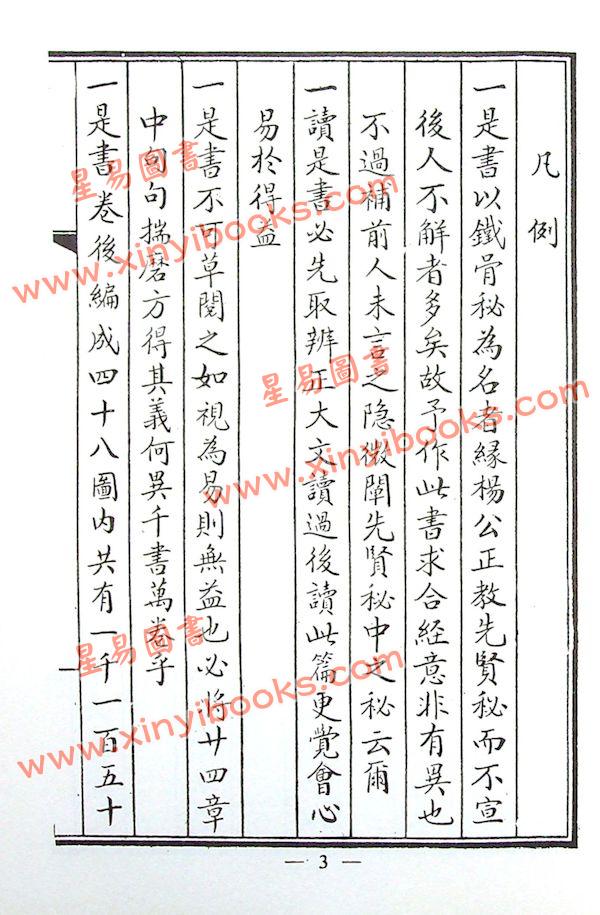 凡例
一是書以鐵骨秘為名者緣楊公正教先賢秘而不宣
後人不解者多矣故予作此書求合經意非有異也
不過補前人未言之隐微闡先賢秘中之秘云爾
一讀是書必先取辨正大文讀過後讀此篇更覺會心
易於得益
一是書不可草閱之如視為易則無益也必將廿四章
中句句揣磨方得其義何異千書萬卷乎
一是書卷後編成四十八圖內共有一千一百五十
一
— 3 —
星易圖書
www.xinyibooks.com
星易圖書
www.xinyibooks.com
星易圖書
www.xinyibooks.com